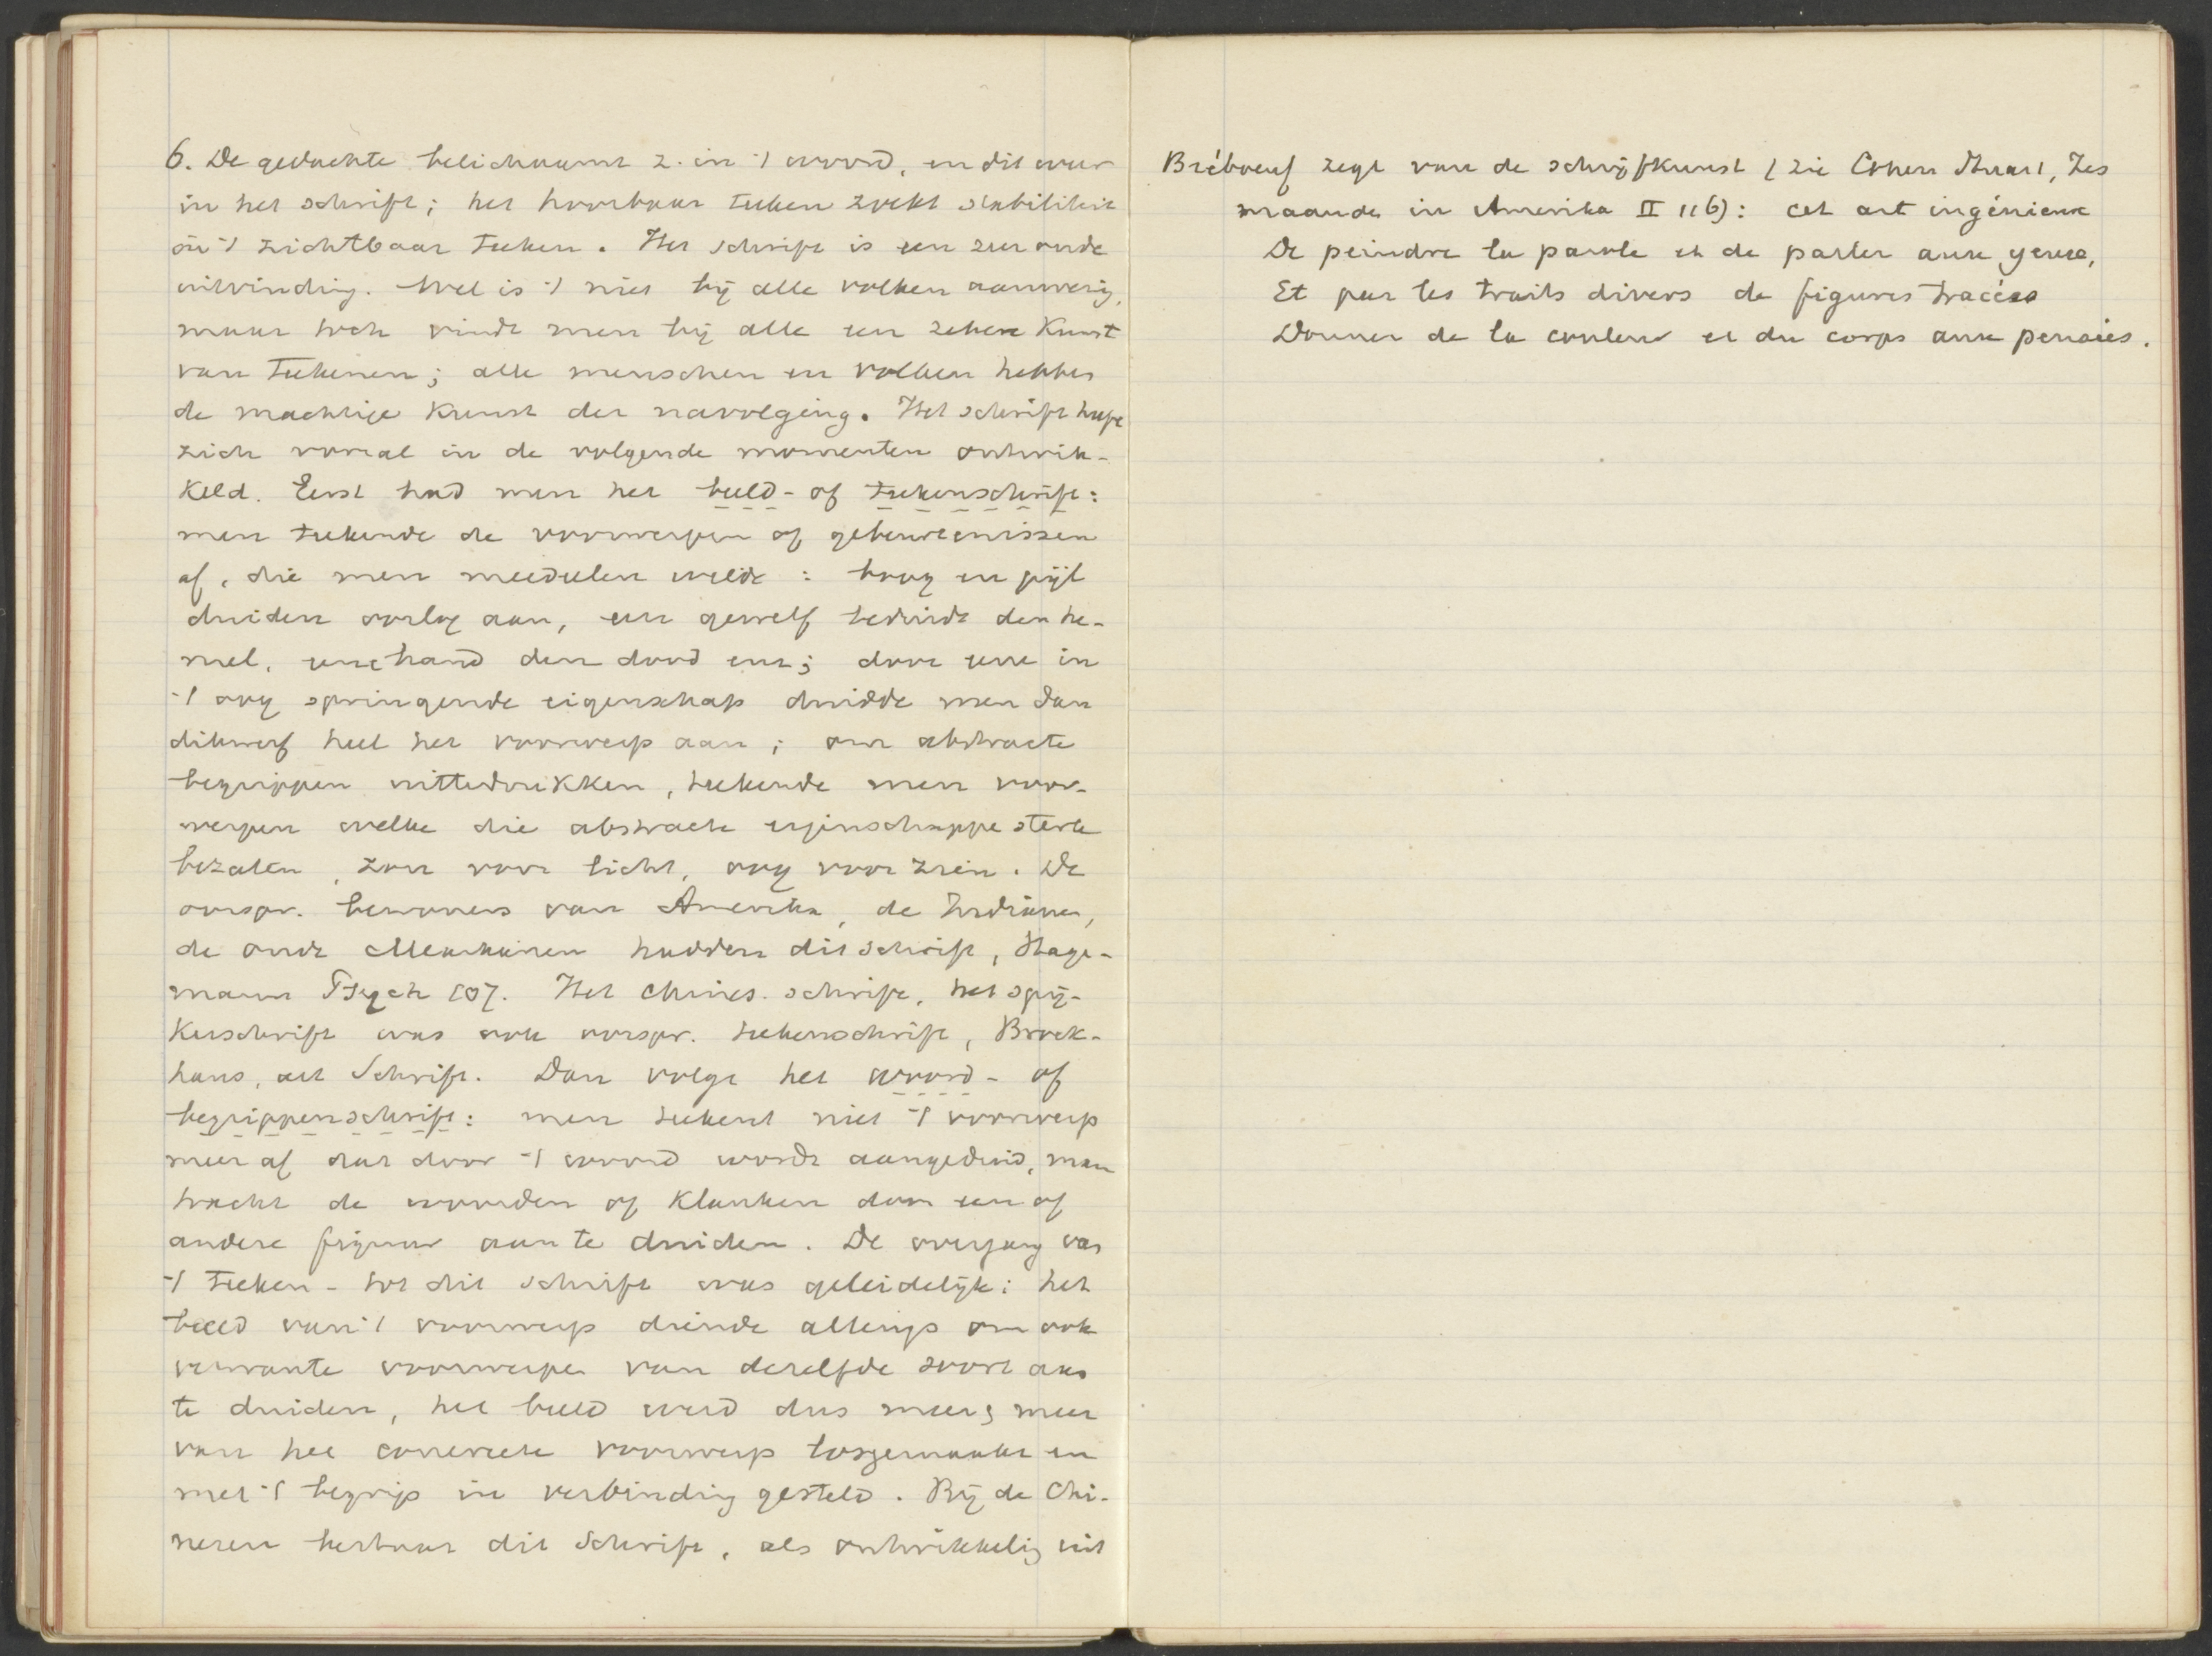 6. De gedachte belichaamt z. in 't woord, en dit weer
in het schrift; het hoorbaar teeken zoekt stabiliteit
in 't zichtbaar teeken. Het schrift is een zeer oude
uitvinding. Wel is 't niet bij alle volken aanwezig,
maar toch vindt men bij alle een zekere Kunst
van Teekenen; alle menschen en volken hebben
de machtige Kunst der navolging. Het schrift heeft
zich vooral in de volgende momenten ontwik-
keld. Eerst had men het beeld- of teekenschrift:
men teekende de voorwerpen of gebeurtenissen
af, die men meedeelen wilde: boog en pijl
duiden oorlog aan, een gewelf beduidt den he-
mel, eene hand den dood enz; door eene in
't oog springende eigenschap duidde men dan
dikwerf heel het voorwerp aan; om abstracte
begrippen uittedrukken, teekende men voor-
werpen welke die abstracte eigenschappe sterk
bezaten, zon voor licht, oog voor zien. De
oorspr. bewoners van Amerika, de Indianen,
de oude Mexikanen hadden dit schrift, Hage-
mann Psych 107. Het Chines. schrift, het spij-
kerschrift was ook oorspr. teekenschrift, Brock-
haus, art Schrift. Dan volgt het woord- of
begrippenschrift: men teekent niet 't voorwerp
meer af dat door 't woord wordt aangeduid, men
tracht de woorden of Klanken door een of
andere figuur aan te duiden. De overgang van
't Teeken- tot dit schrift was geleidelijk: het
beeld van 't voorwerp diende allengs om ook
verwante voorwerpen van dezelfde soort aan
te duiden, het beeld werd dus meer & meer
van het concrete voorwerp losgemaakt en
met 't begrip in verbinding gesteld. Bij de Chi-
nezen bestaat dit Schrift, als ontwikkelig uit
Brébœuf zegt van de schrijfkunst (zie Cohen Stuart, Zes
maanden in Amerika II 116): cet art ingénieux
De peindre la parole et de parler aux yeux,
Et par les traits divers de figures tracées
Donner de la couleur et du corps aux pensées.